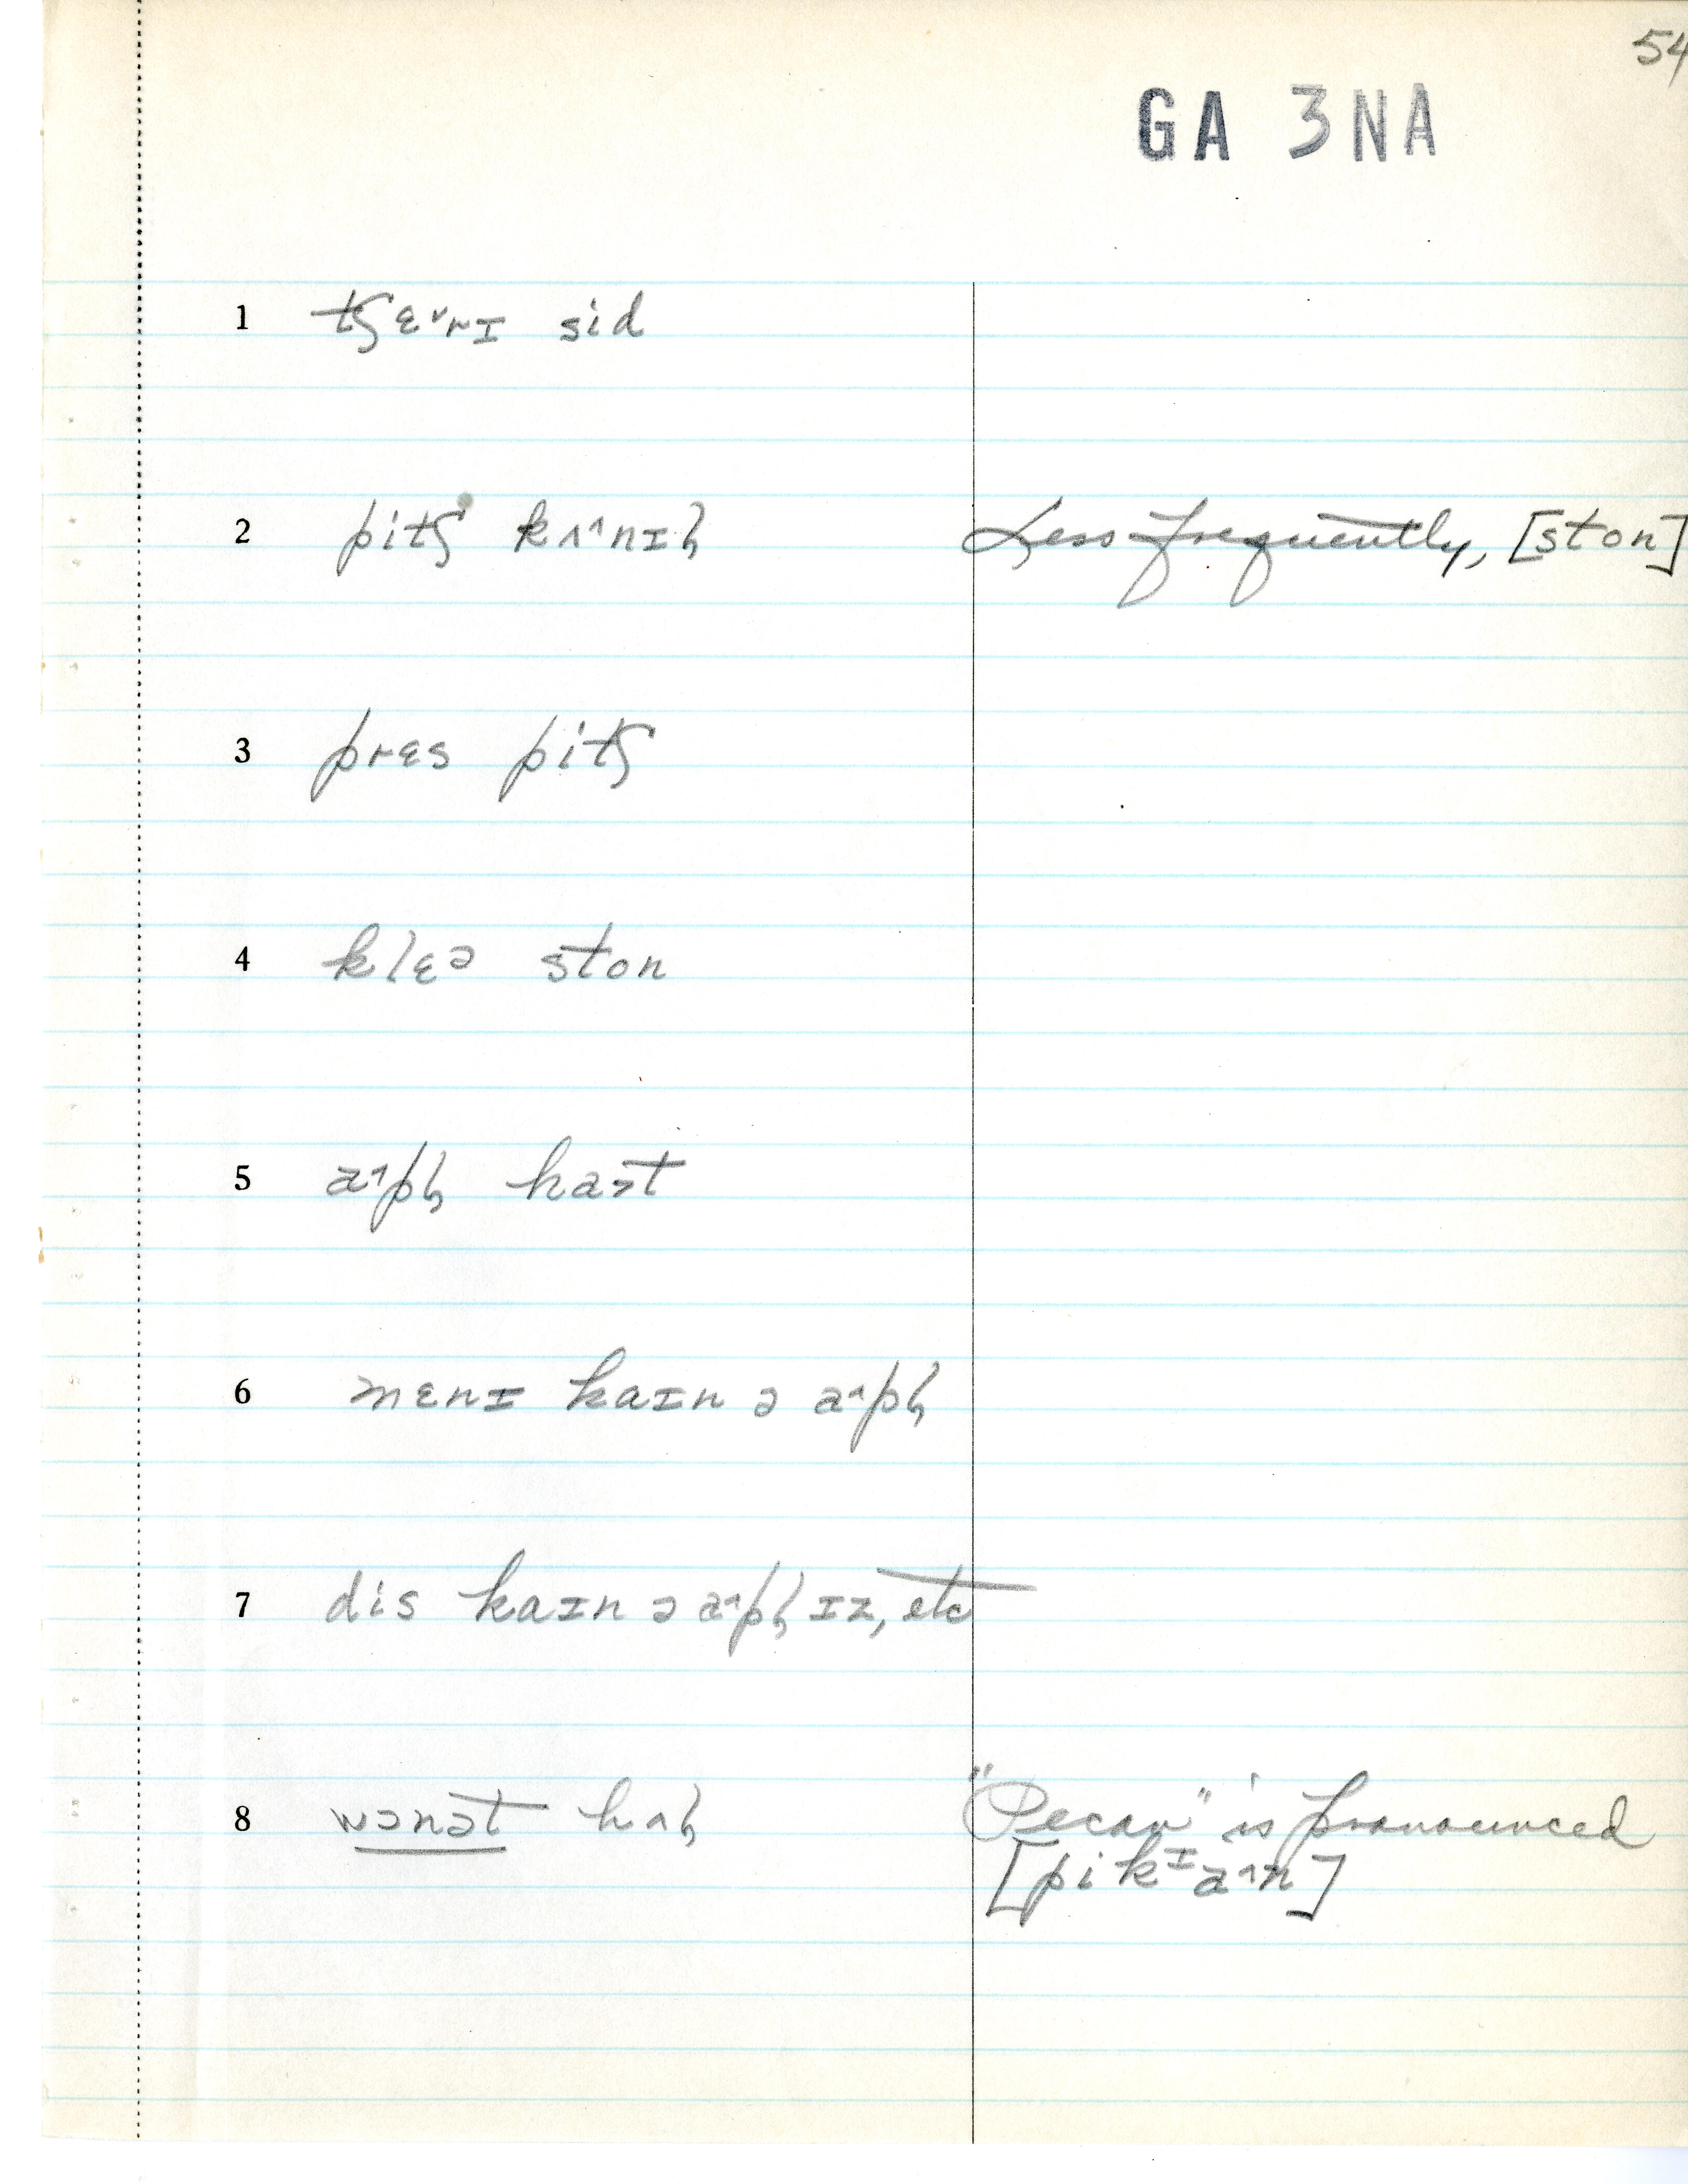 54
GA 3NA
1 tʃɛ˅rɪ sid
2 pitʃ kʌ˄nɪɫ Less frequently, [ston]
3 prɛs pitʃ
4 klɛə ston
5 a˄pɫ haət
6 mɛnɪ kaɪn ə a˄pɫ
7 dis kaɪn ə a˄pɫ ɪz, etc
8 wɔnət hʌɫ "Pecan" is pronounced
[pikᶦa˄n]